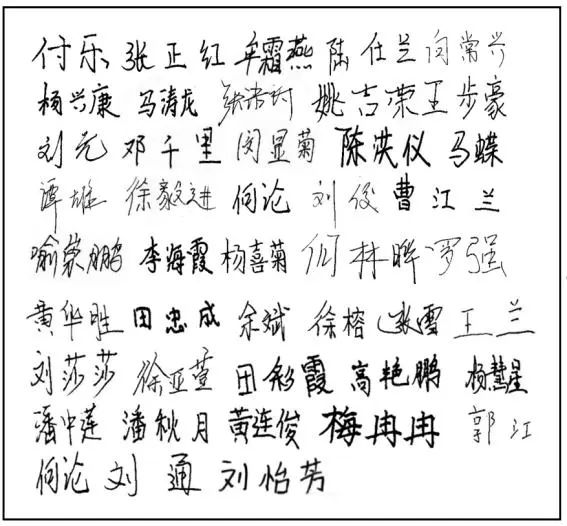 付乐 张正红 牟霜燕 陆仕兰 闵常兴
杨兴康 马涛龙 姚吉荣 王步豪
刘元 邓千里 闵显菊 陈洪仪 马蝶
谭雄 徐毅文进 何论 刘俊 曹江兰
喻荣鹏 李海霞 杨喜菊 何林晔 罗强
黄华胜 田忠成 余斌 徐榕 张雪 王兰
刘莎莎 徐亚萱 田彩霞 高艳鹏 杨慧星
潘中莲 潘秋月 黄连俊 梅冉冉 郭江
何论 刘通 刘怡芳